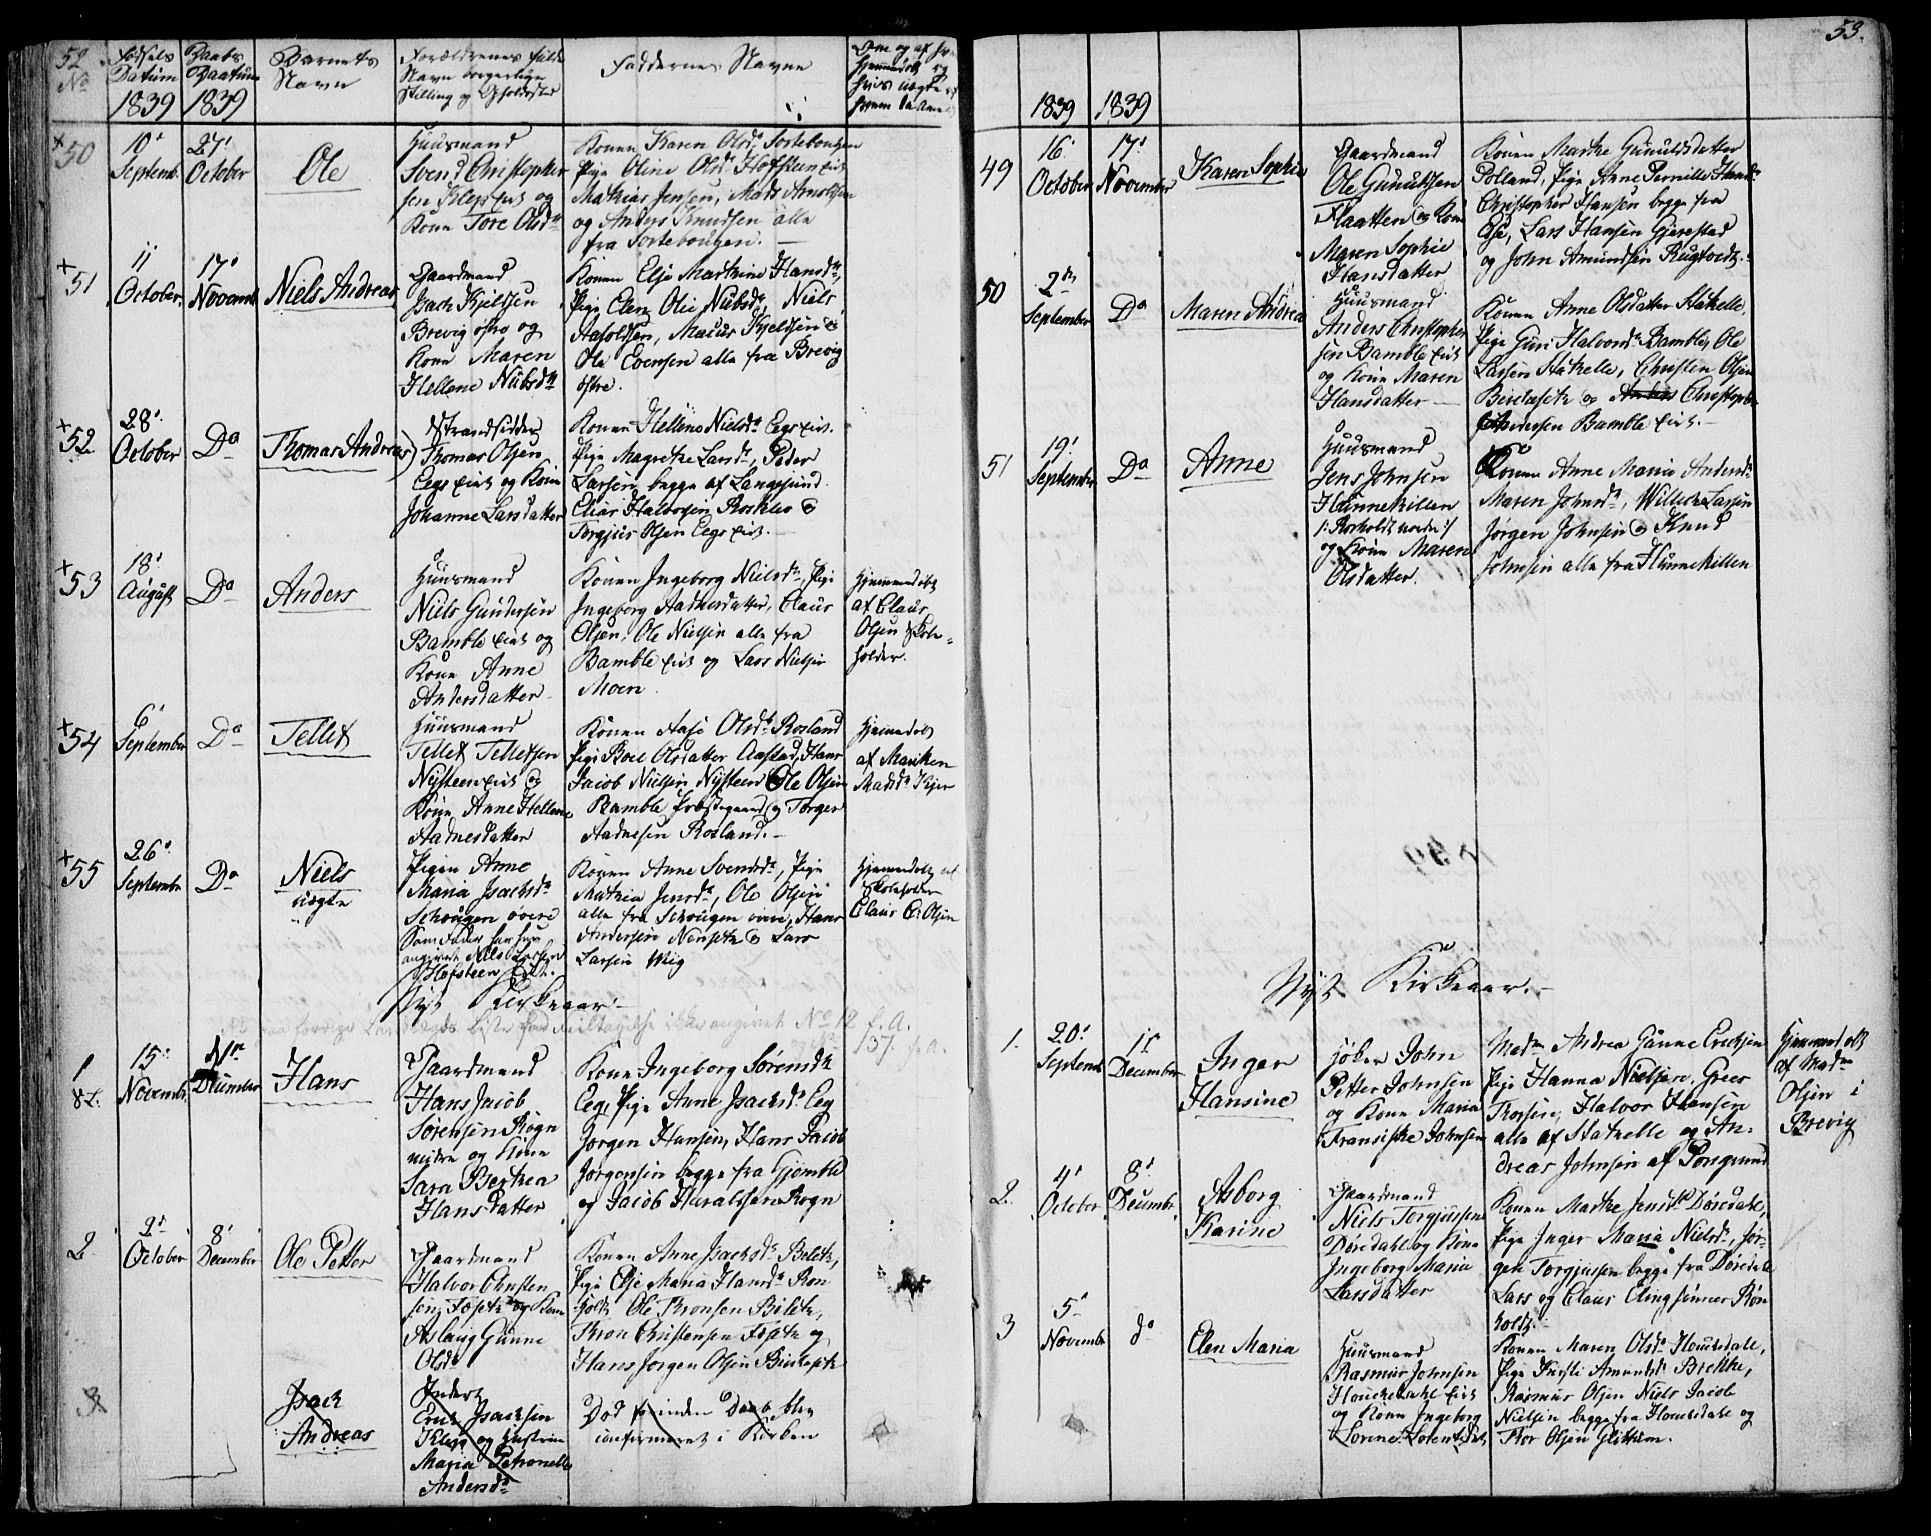 52
No
Fødsels
Datum
1839
Daabs
Daatum
1839
Barnets
Navn
Forældrenes fulde
Navn borgerlige
Stilling og Opholdssted
Faddernes Navne
+50
10'
Septemb.
27'
October
Ole
Huusmand
Svend Christopher
sen Klep Eie og
Kone Tore Olsdr
Konen Karen Olsd. Sortebougen
Pige Oline Olsdr
Mathias Jensen, Mads Arnoldsen
og Anders Knudsen alle
fra Sortebougen.
+51
11
October
17'
Novemb.
Niels Andreas
Gaardmand
Isach Kjeldsen
Brevig østre og
Kone Maren
Hellene Nielsdr
Konen Else Marthine Hansdr,
Pige Elen Olie Nielsdr, Niels
Aasoldsen, Marcus Kjeldsen &
Ole Evensen alle fra Brevig
østre.
+52
28'
October
Do
Thomas Andreas
Strandsidder
Thomas Olsen
Eegs Eie og Kone
Johanne Larsdatter
Konen Hellene Nielsdr Eegs Eie.
Pige Magrethe Larsdr, Peder
Larsen begge af Langesund.
Eliar Halvorsen Roskleo &
Torgjus Olsen Eegs Eie.
+53
18'
August
Do
Anders
Huusmand
Niels Gundersen
Bamble Eie og
Kone Anne
Andersdatter
Konen Ingeborg Nielsdr, Pige
Ingeborg Aadnesdatter, Claus
Olsen, Ole Nielsen alle fra
Bamble Eie og Lars Nielsen
Moen.
Hjemmedøbt
af Claus
Olsen Skole-
holder.
+54
6'
September
Do
Tellef
Huusmand
Tellef Tellefsen
Nysteen Eie og
Kone Anne Hellene
Aadnesdatter
Konen Aase Olsdr Rosland
Pige Boel Olsdatter Aastad, Hans
Jacob Nielsen Nysteen Ole Olsen
Bamble Præstegaard og Torger
Aadnesen Rosland.
Hjemmedøbt
af Mariken
Madsdr Kjær
+55
26'
Septembr
Do
Niels
uægte
Pigen Anne
Maria Isachsdr
Schougen øvere
Som Fader har hun
angivet Nils Larsen
Hafsteen Eie.
Konen Anne Svendsdr, Pige
Mathia Jensdr, Ole Olsen
alle fra Schougen øvre, Hans
Andersen Nenseth & Lars
Larsen Wiig
Hjemmedøbt af
Skoleholder
Claus C. Olsen
Nyt Kirkeaar.
No 12 f. A.
137. f. A.
1
15'
Novembr.
1ste
December
Hans
Gaardmand
Hans Jacob
Sørensen Rogn
nedre og Kone
Sara Berthea
Hansdatter
Kone Ingeborg Sørensdr
Eeg, Pige Anne Isachsdr Eeg
Jørgen Hansen, Hans Jacob
Jørgensen begge fra Gjømble
og Jacob Haraldsen Rogn
2
2'
October
8'
December
Ole Petter
Gaardmand
Halvor Christen
sen Fosse og Kone
Aslaug Gunne
Olsdr
Konen Anne Isachsdr Bileth,
Pige Else Maria Hansdr Røn
holt Ole Tronsen Bileth,
Tron Christensen Fosse og
Hans Jørgen Olsen
3
Isach
Andreas
Erich Isachsen
Klep og Hustrue
Maria Petronelle
Andersdr
Død forinden Daab blev
confirmeret i Kirken
53.
1839
1839
49
16'
October
17'
November
Karen Sophie
Gaardmand
Ole Gunulfsen
Flaatten og Kone
Maren Sophie
Hansdatter
Konen Marthe Gunuldsdatter
Rolland, Pige Anne Pernille Hansdr
Christopher Hansen begge fra
Ese, Lars Hansen Gjerestad
og John Amundsen Rugtvedt.
50
2den
September
Do
Maren Andrea
Huusmand
Anders Christopher
sen Bamble Eie
og Kone Maren
Hansdatter
Konen Anne Olsdatter Stathelle,
Pige Guri Halvorsdr Bamble, Ole
Larsen Stathelle, Christen Olsen
og Anders Christopher
Andersen Bamble Eie.
51
19'
September
Do
Anne
Huusmand
Jens Johnsen
Hunnekillen
/: Rorholdt nordre :/
og Kone Maren
Olsdatter.
Konen Anne Maria Andersdr
Maren Johnsdr, Willum Larsen
Jørgen Johnsen & Knud
Johnsen alle fra Hunnekillen
Nyt Kirkeaar.
1.
20'
Septemb
1ste
December
Inger
Hansine
John
Petter Johnsen
og Kone Maria
Fransiske Johnsen
Madm Andrea Gunne Erichsen
Pige Hanna Nielsen. Greer
Thorsen, Halvor Hansen
alle af Stathelle og An-
dreas Johnsen af Porsgrund
Hjemmedøbt
af Madm
Olsen i
Brevig
2.
4'
October
8'
Decembr.
Asborg
Karine
Gaardmand
Niels Torgjussen
Dørdahl og Kone
Ingeborg Maria
Larsdatter
Konen Marthe Jensdr Dørdahl,
Pige Inger Maria Nielsdr, Jør-
gen Torgjussen begge fra Dørdahl
Lars og Claus Elingsønner Røn
holt.
3
5'
Novembr
do
Elen Maria
Huusmand
Rasmus Johnsen
Eie
og Kone Ingeborg
Lorene
Konen Maren Olsdr
Pige Kirsti Amundsdr Brekke,
Rasmus Olsen Niels Jacob
Nielsen begge fra og
Thor Olsen